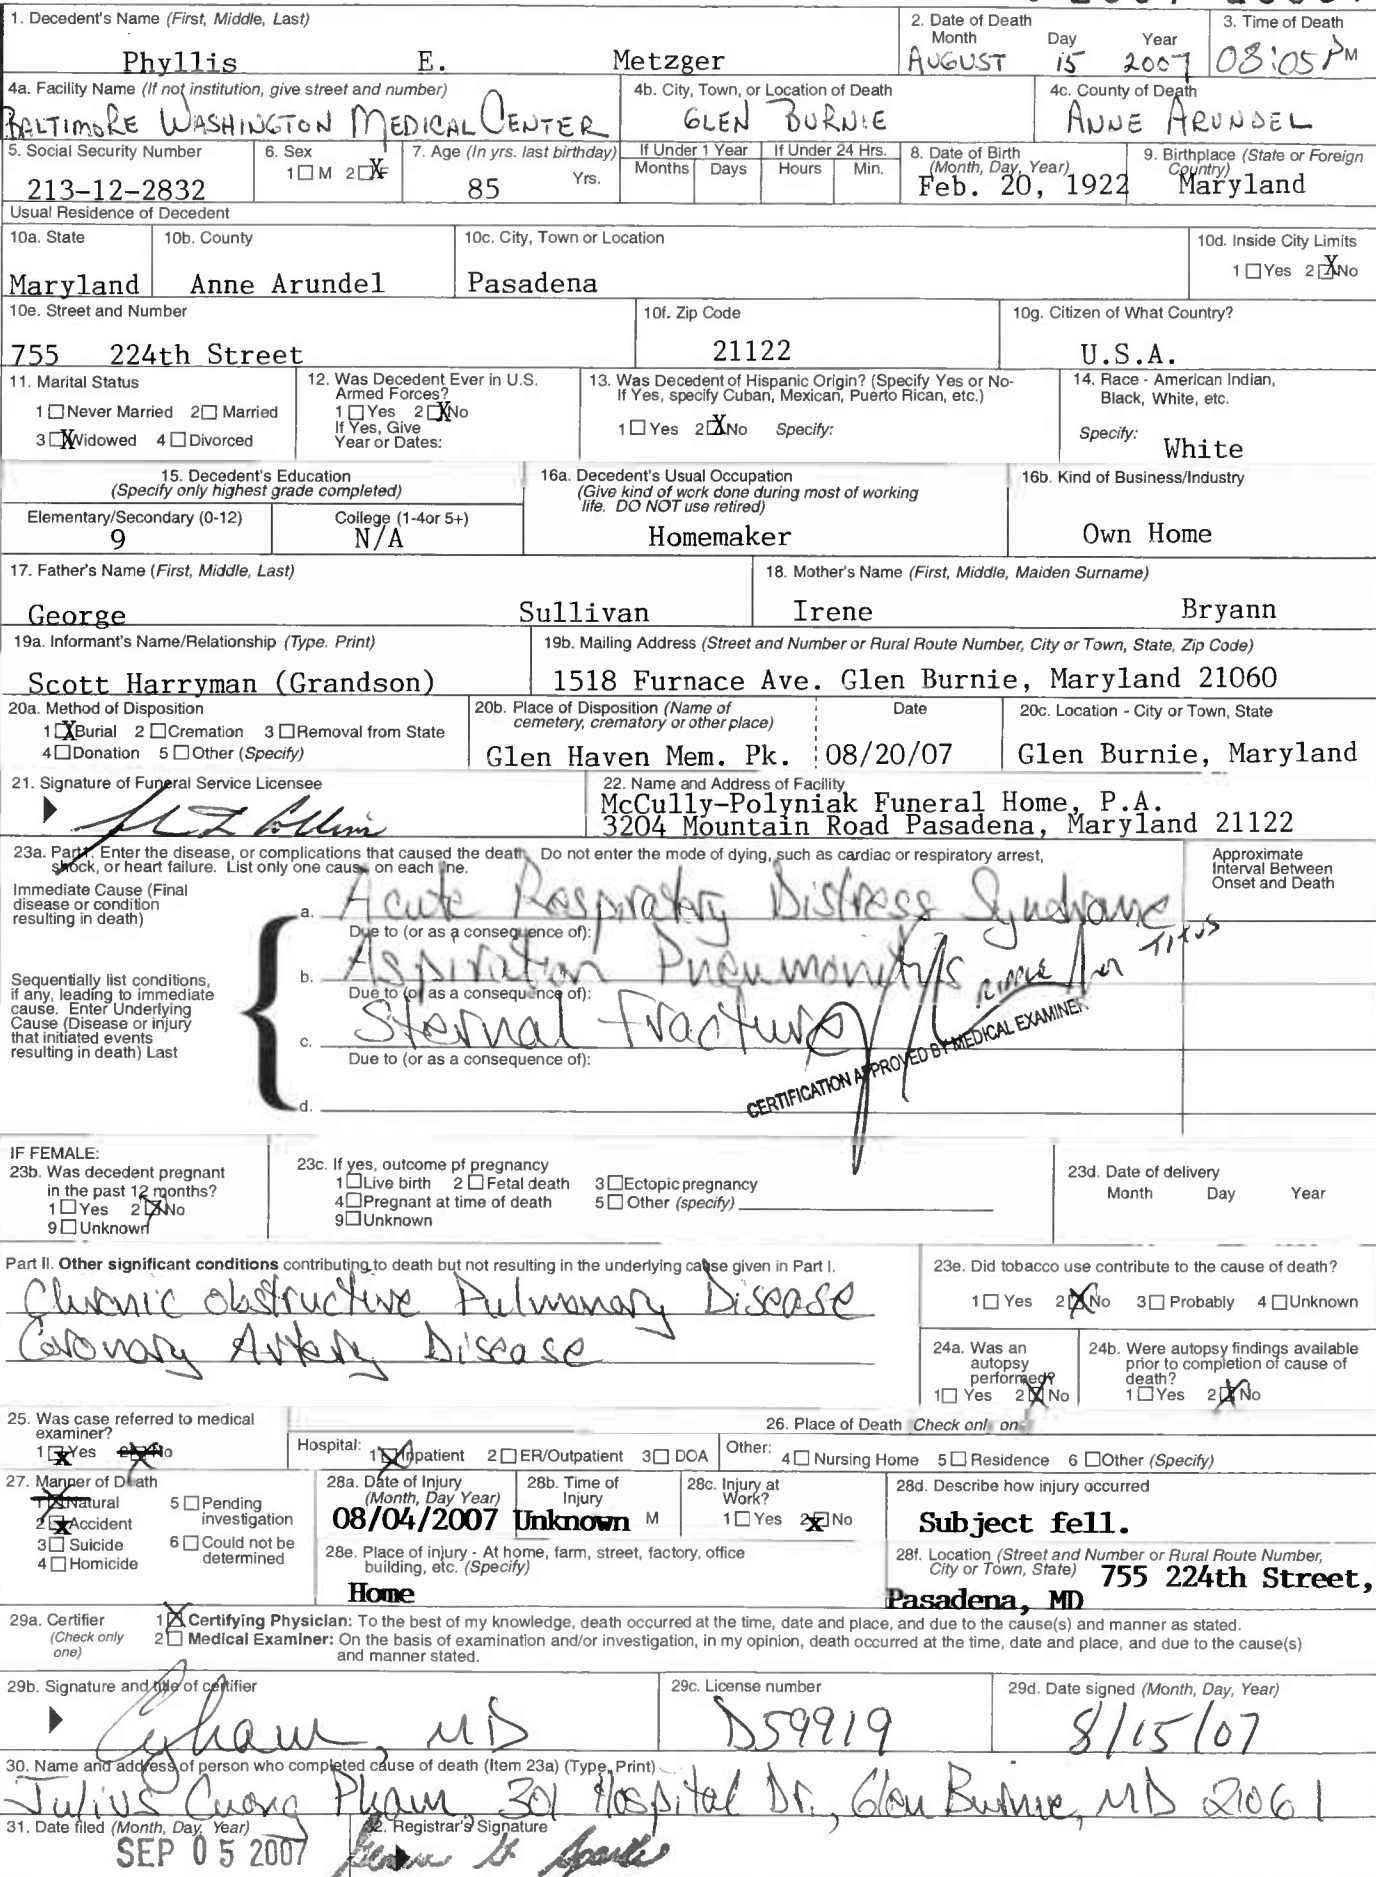 1. Decedent's Name (First, Middle, Last)
Phyllis E. Metzger
2. Date of Death
Month Day Year
AUGUST 15 2007
3. Time of Death
08:05 P M
4a. Facility Name (If not institution, give street and number)
BALTIMORE WASHINGTON MEDICAL CENTER
4b. City, Town, or Location of Death
GLEN BURNIE
4c. County of Death
ANNE ARUNDEL
5. Social Security Number
213-12-2832
6. Sex
1 M 2 X F
7. Age (In yrs. last birthday)
85 Yrs.
If Under 1 Year
Months Days
If Under 24 Hrs.
Hours Min.
8. Date of Birth
(Month, Day, Year)
Feb. 20, 1922
9. Birthplace (State or Foreign
Country)
Maryland
Usual Residence of Decedent
10a. State
Maryland
10b. County
Anne Arundel
10c. City, Town or Location
Pasadena
10d. Inside City Limits
1 Yes 2 X No
10e. Street and Number
755 224th Street
10f. Zip Code
21122
10g. Citizen of What Country?
U.S.A.
11. Marital Status
1 Never Married 2 Married
3 X Widowed 4 Divorced
12. Was Decedent Ever in U.S.
Armed Forces?
1 Yes 2 X No
If Yes, Give
Year or Dates:
13. Was Decedent of Hispanic Origin? (Specify Yes or No-
If Yes, specify Cuban, Mexican, Puerto Rican, etc.)
1 Yes 2 X No Specify:
14. Race - American Indian,
Black, White, etc.
Specify: White
15. Decedent's Education
(Specify only highest grade completed)
Elementary/Secondary (0-12)
9
College (1-4or 5+)
N/A
16a. Decedent's Usual Occupation
(Give kind of work done during most of working
life. DO NOT use retired)
Homemaker
16b. Kind of Business/Industry
Own Home
17. Father's Name (First, Middle, Last)
George Sullivan
18. Mother's Name (First, Middle, Maiden Surname)
Irene Bryann
19a. Informant's Name/Relationship (Type. Print)
Scott Harryman (Grandson)
19b. Mailing Address (Street and Number or Rural Route Number, City or Town, State, Zip Code)
1518 Furnace Ave. Glen Burnie, Maryland 21060
20a. Method of Disposition
1 X Burial 2 Cremation 3 Removal from State
4 Donation 5 Other (Specify)
20b. Place of Disposition (Name of
cemetery, crematory or other place)
Glen Haven Mem. Pk.
Date
08/20/07
20c. Location - City or Town, State
Glen Burnie, Maryland
21. Signature of Funeral Service Licensee
22. Name and Address of Facility
McCully-Polyniak Funeral Home, P.A.
3204 Mountain Road Pasadena, Maryland 21122
23a. Part I. Enter the disease, or complications that caused the death. Do not enter the mode of dying, such as cardiac or respiratory arrest,
shock, or heart failure. List only one cause on each line.
Approximate
Interval Between
Onset and Death
Immediate Cause (Final
disease or condition
resulting in death)
a. Acute Respiratory Distress Syndrome
Due to (or as a consequence of):
b. Aspiration Pneumonitis
Due to (or as a consequence of):
c. Sternal Fracture
Due to (or as a consequence of):
d.
Sequentially list conditions,
if any, leading to immediate
cause. Enter Underlying
Cause (Disease or injury
that initiated events
resulting in death) Last
RIPPLE
TITUS
CERTIFICATION APPROVED BY MEDICAL EXAMINER
IF FEMALE:
23b. Was decedent pregnant
in the past 12 months?
1 Yes 2 X No
9 Unknown
23c. If yes, outcome pf pregnancy
1 Live birth 2 Fetal death 3 Ectopic pregnancy
4 Pregnant at time of death 5 Other (specify)
9 Unknown
23d. Date of delivery
Month Day Year
Part II. Other significant conditions contributing to death but not resulting in the underlying cause given in Part I.
Chronic obstructive Pulmonary Disease
Coronary Artery Disease
23e. Did tobacco use contribute to the cause of death?
1 Yes 2 X No 3 Probably 4 Unknown
24a. Was an
autopsy
performed?
1 Yes 2 X No
24b. Were autopsy findings available
prior to completion of cause of
death?
1 Yes 2 X No
25. Was case referred to medical
examiner?
1 X Yes 2 X No
26. Place of Death Check only on
Hospital: 1 X Inpatient 2 ER/Outpatient 3 DOA
Other: 4 Nursing Home 5 Residence 6 Other (Specify)
27. Manner of Death
1 X Natural
2 X Accident
3 Suicide
4 Homicide
5 Pending
investigation
6 Could not be
determined
28a. Date of Injury
(Month, Day Year)
08/04/2007
28b. Time of
Injury
Unknown M
28c. Injury at
Work?
1 Yes 2 X No
28d. Describe how injury occurred
Subject fell.
28e. Place of injury - At home, farm, street, factory, office
building, etc. (Specify)
Home
28f. Location (Street and Number or Rural Route Number,
City or Town, State) 755 224th Street,
Pasadena, MD
29a. Certifier
(Check only
one)
1 X Certifying Physician: To the best of my knowledge, death occurred at the time, date and place, and due to the cause(s) and manner as stated.
2 Medical Examiner: On the basis of examination and/or investigation, in my opinion, death occurred at the time, date and place, and due to the cause(s)
and manner stated.
29b. Signature and title of certifier
MD
29c. License number
D59919
29d. Date signed (Month, Day, Year)
8/15/07
30. Name and address of person who completed cause of death (Item 23a) (Type, Print)
Julius Cuong Pham, 301 Hospital Dr., Glen Burnie, MD 21061
31. Date filed (Month, Day, Year)
SEP 05 2007
32. Registrar's Signature